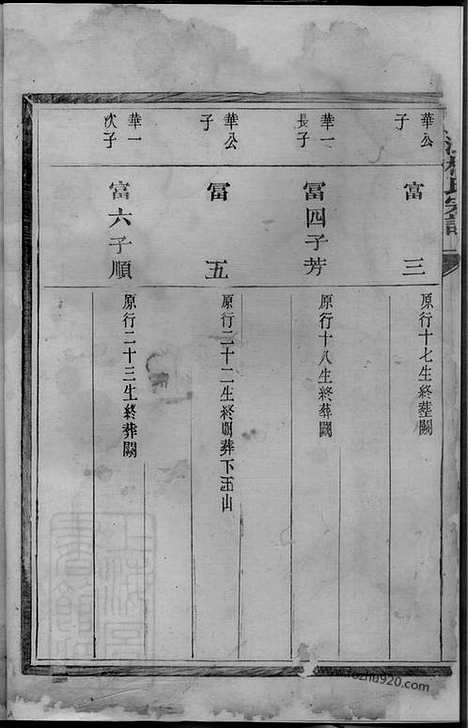 氏宗譜
華公
子
富三
原行十七生終塟闕
華一
長子
冨四子芳
原行十八生終葬闕
華公
子
冨五
原行二十二生終闕葬下王山
華一
次子
富六子順
原行二十三生終葬闕
www.jiazhu920.com